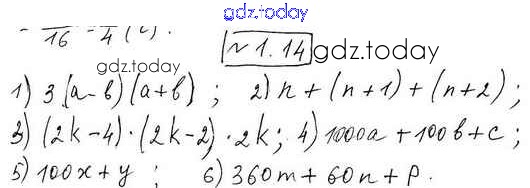 gdz.today
- 16 - 4 (c).
№ 1.14 gdz.today
gdz.today
1) 3(a-b)(a+b); 2) n+(n+1)+(n+2);
3) (2k-4)·(2k-2)·2k; 4) 1000a+100b+c;
5) 100x+y; 6) 360m+60n+p.